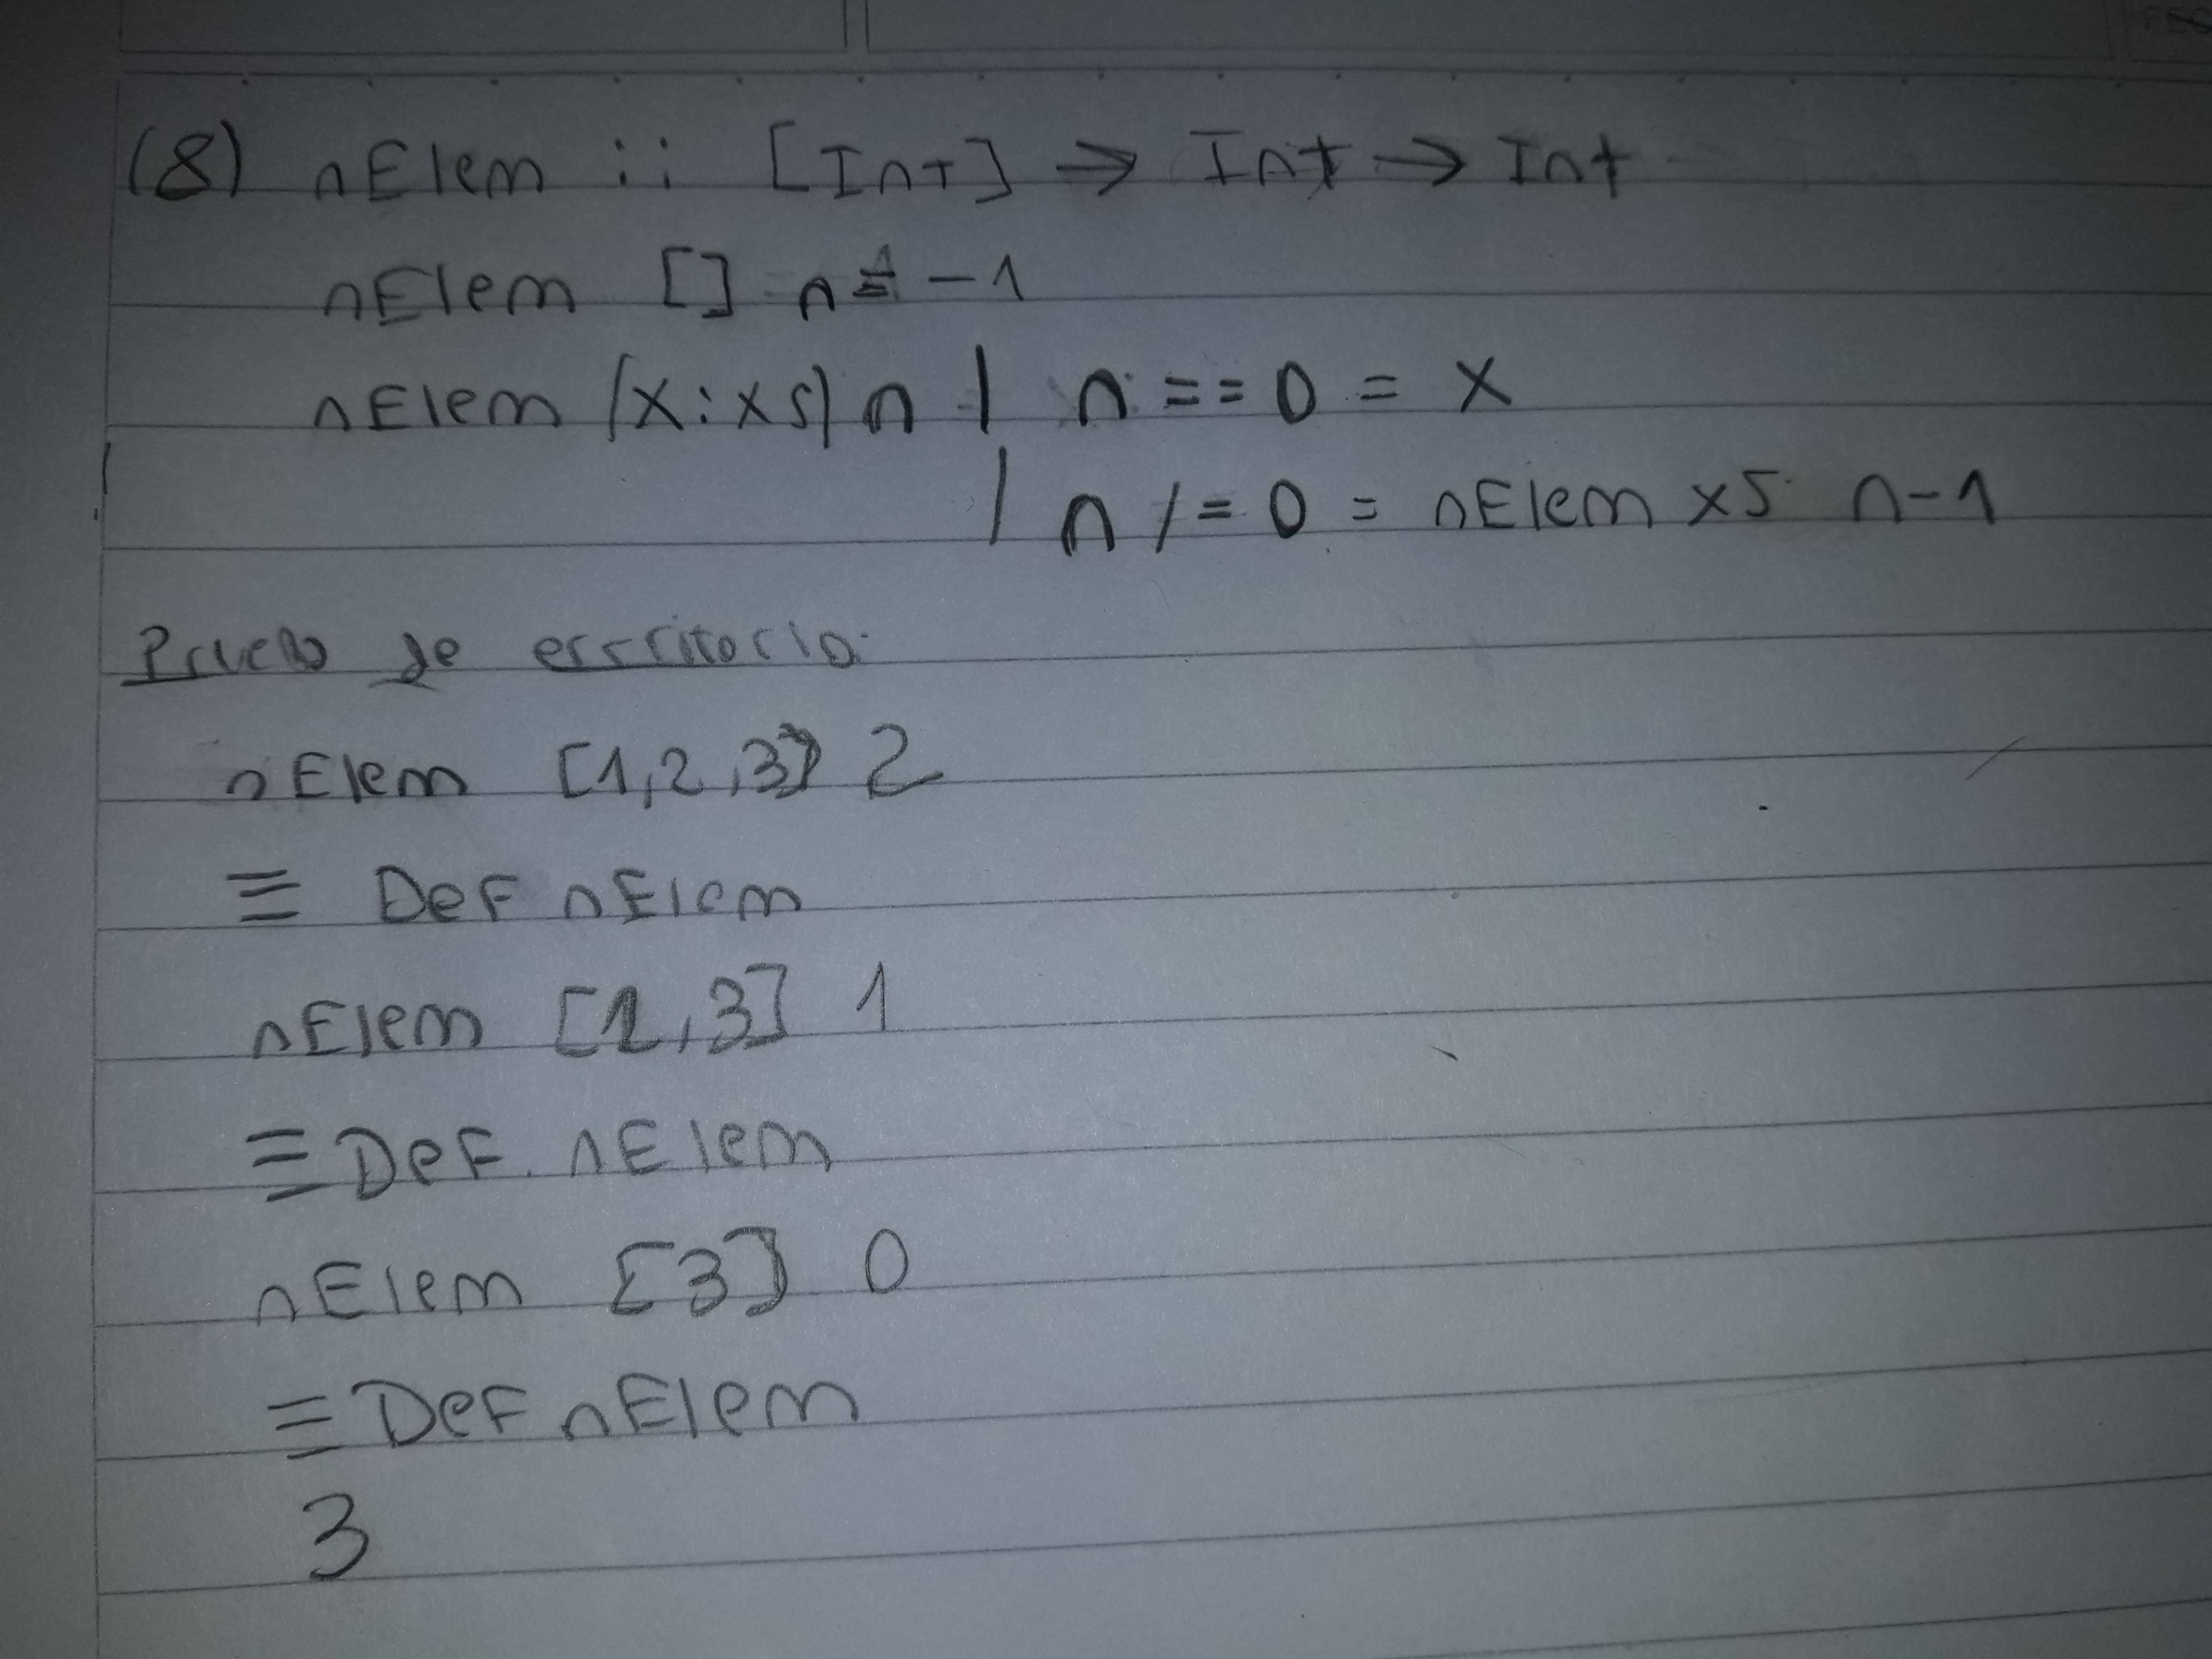 FEC
(8) nElem :: [Int] → Int → Int
nElem [] n = -1
nElem (x:xs) n | n == 0 = x
| n /= 0 = nElem xs n-1
Prueba de escritorio:
nElem [1,2,3] 2
≡ Def nElem
nElem [2,3] 1
≡ Def. nElem
nElem [3] 0
≡ Def nElem
3